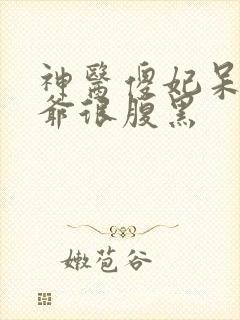 神醫傻妃呆
爺很腹黑
嫩苞谷